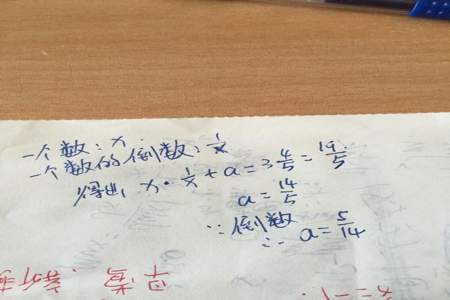 一个数：x
一个数的倒数：1/x
得出 x·1/x+a=3 4/5=19/5
a=14/5
∵倒数
∴a=5/14